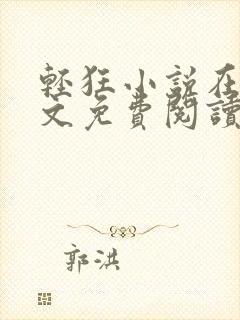 輕狂小說在
文免費閱讀
郭洪